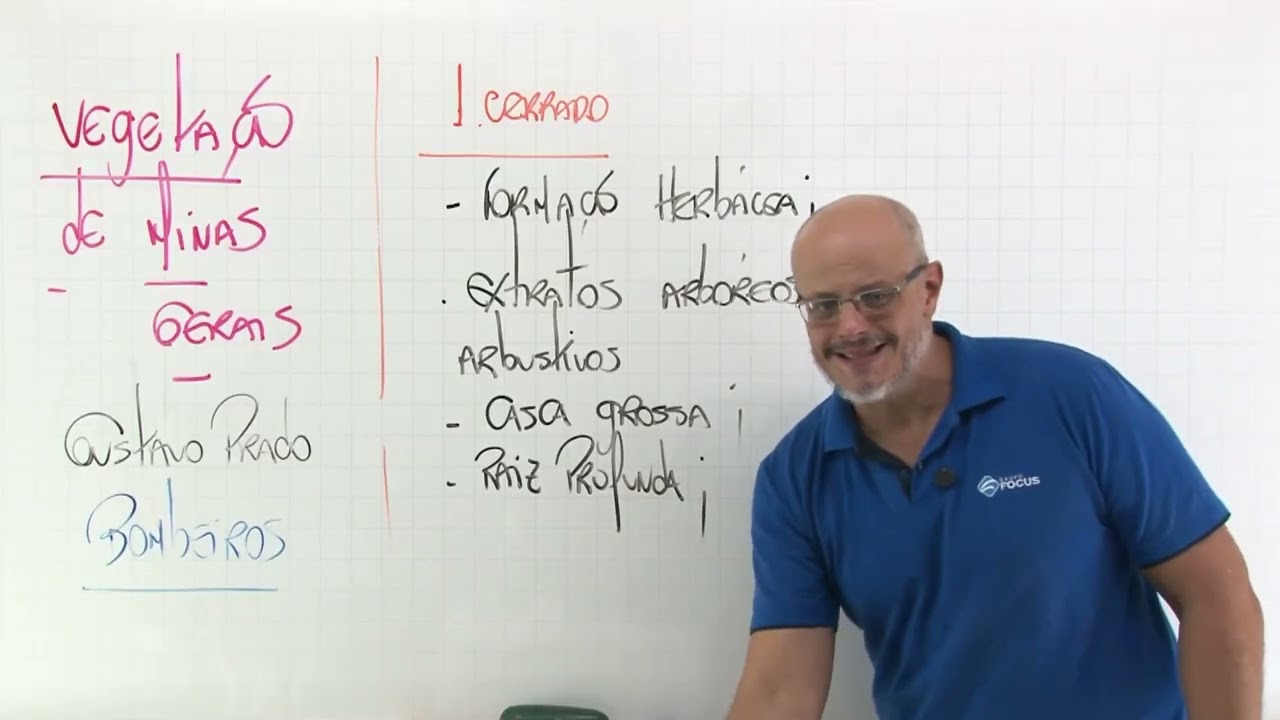 VEGETAÇÃO
DE MINAS
GERAIS
GUSTAVO PRADO
BOMBEIROS
1. CERRADO
- FORMAÇÃO HERBÁCEA;
. EXTRATOS ARBÓREOS
ARBUSTIVOS
- CASCA GROSSA;
- RAIZ PROFUNDA;
GRUPO
FOCUS